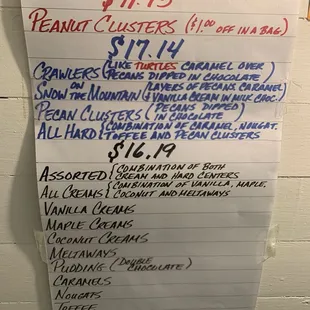 PEANUT CLUSTERS ($1.00 OFF IN A BAG)
$17.14
CRAWLERS (LIKE TURTLES CARAMEL OVER PECANS DIPPED IN CHOCOLATE)
SNOW ON THE MOUNTAIN (LAYERS OF PECANS, CARAMEL & VANILLA CREAM IN MILK CHOC.)
PECAN CLUSTERS (PECANS DIPPED IN CHOCOLATE)
ALL HARD (COMBINATION OF CARAMEL, NOUGAT, TOFFEE AND PECAN CLUSTERS
$16.19
ASSORTED (COMBINATION OF BOTH CREAM AND HARD CENTERS
ALL CREAMS (COMBINATION OF VANILLA, MAPLE, COCONUT AND MELTAWAYS
VANILLA CREAMS
MAPLE CREAMS
COCONUT CREAMS
MELTAWAYS
PUDDING (DOUBLE CHOCOLATE)
CARAMELS
NOUGATS
TOFFEE